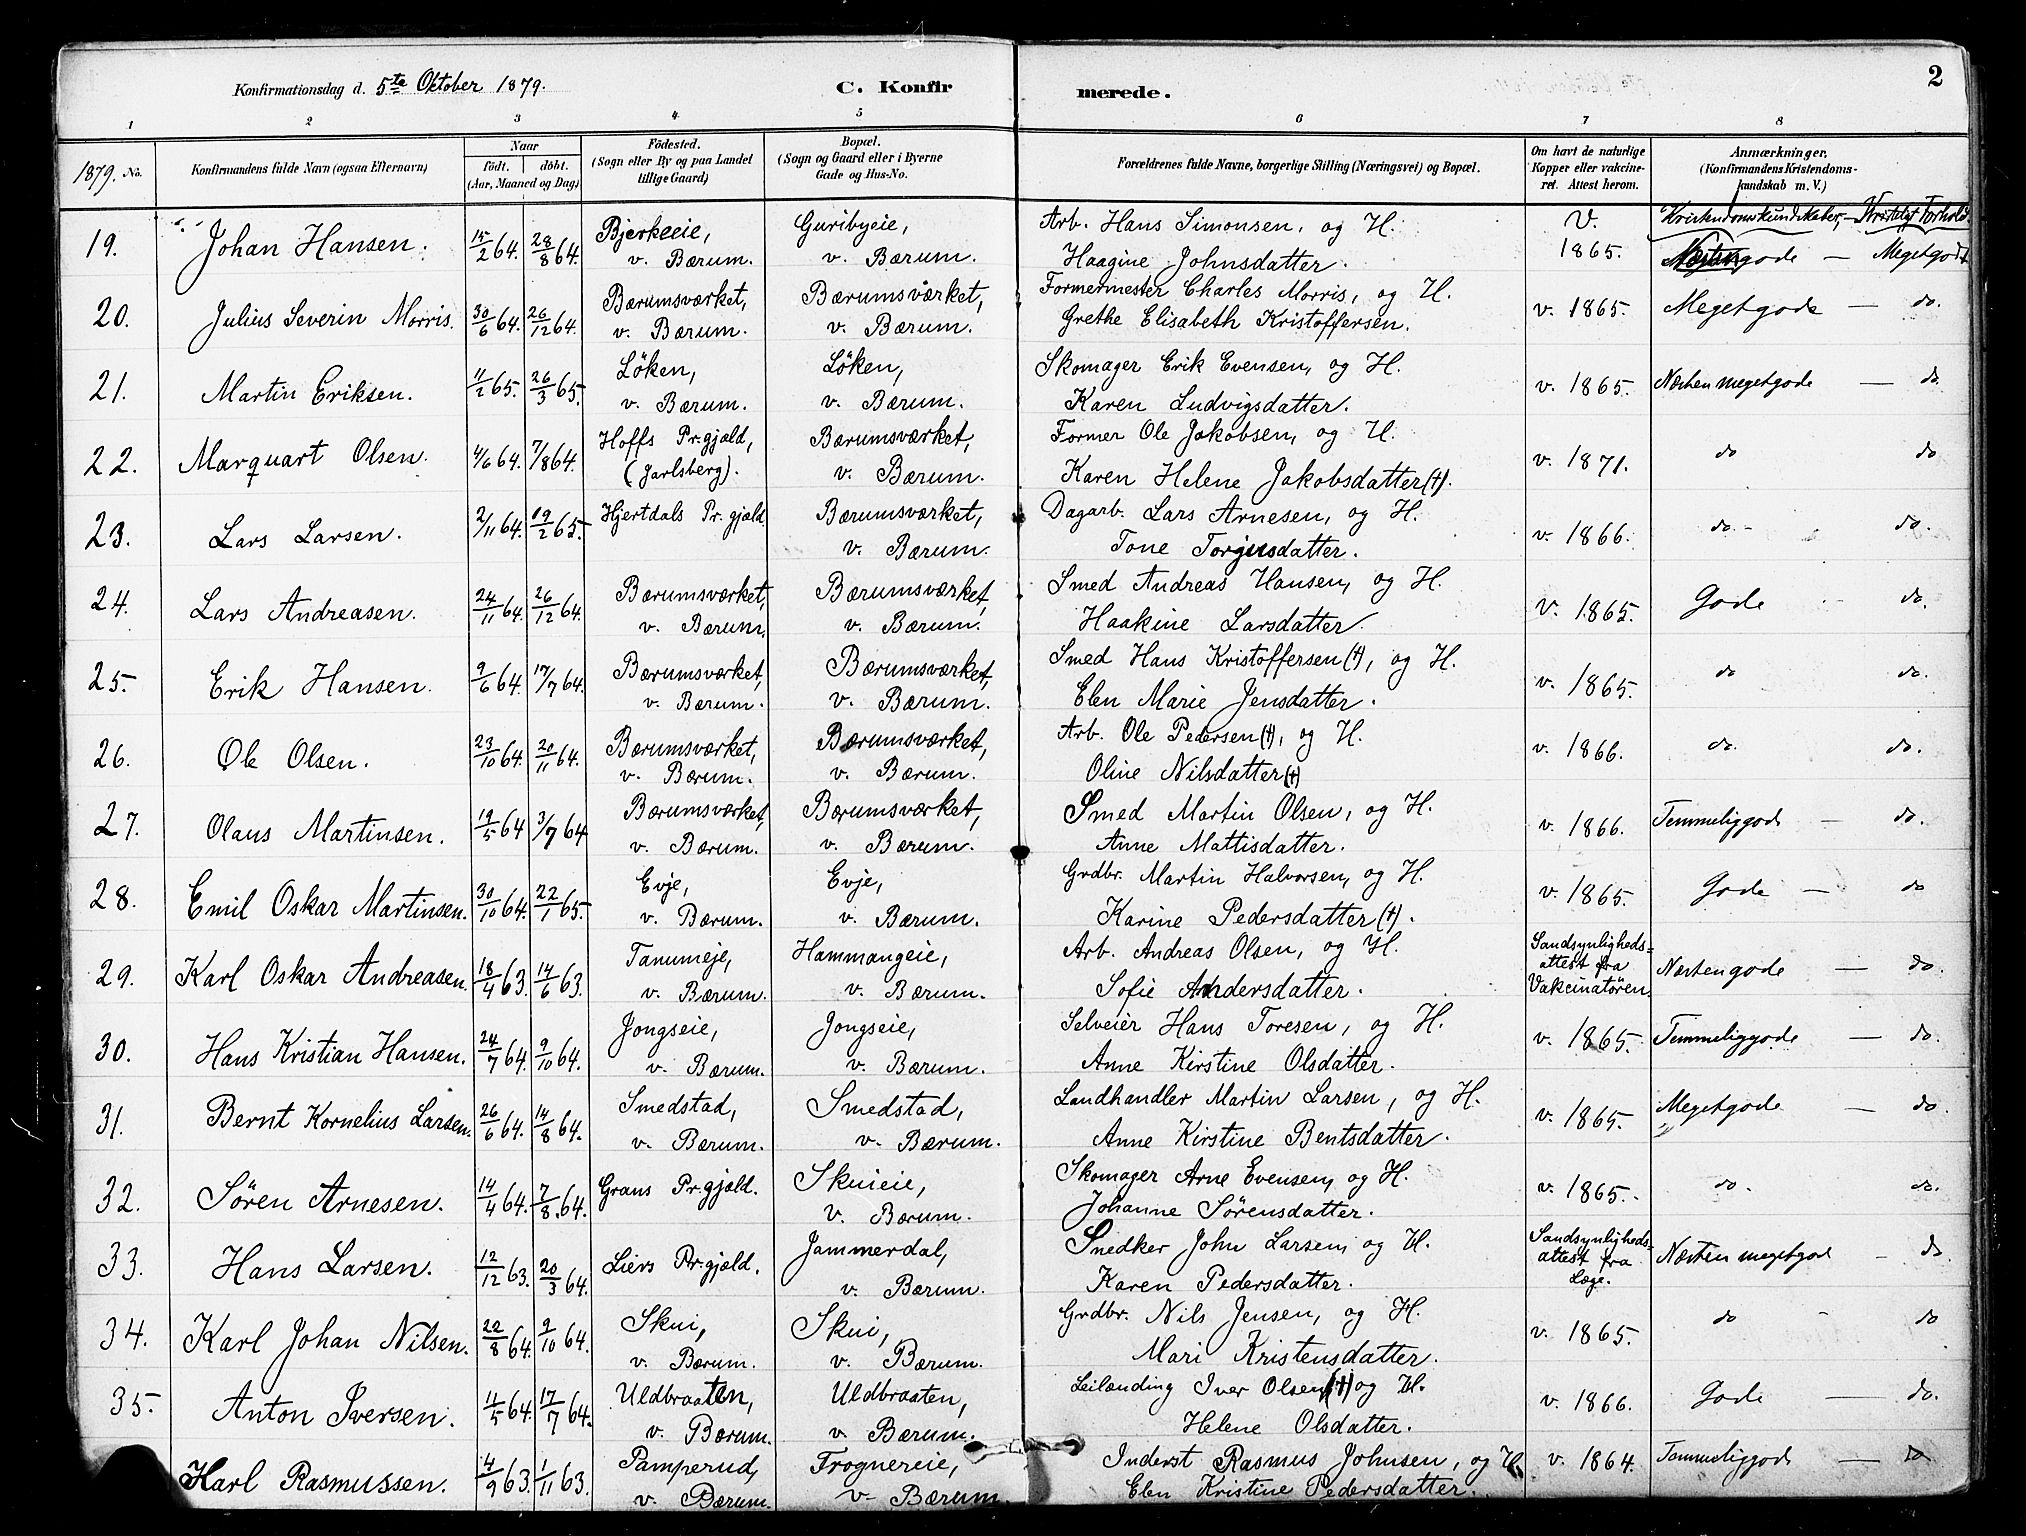 Konfirmationsdag d. 5te Oktober 1879.
C. Konfirmerede.
2
1 2 3 4 5 6 7 8
1879. No.
Konfirmandens fulde Navn (ogsaa Efternavn)
Naar
født. døbt.
(Aar, Maaned og Dag)
Födested.
(Sogn eller By og paa Landet
tillige Gaard)
Bopæl.
(Sogn og Gaard eller i Byerne
Gade og Hus-No.
Forældrenes fulde Navne, borgerlige Stilling (Næringsvei) og Bopæl.
Om havt de naturlige
Kopper eller vakcine-
ret. Attest herom.
Anmærkninger.
(Konfirmandens Kristendoms-
kundskab m. V.)
Kristendomskundskaber, – Kristeligt Forhold
19. Johan Hansen. 15/2 64. 28/8 64. Bjerkeeie, v. Bærum. Guribyeie, v. Bærum. Arb. Hans Simonsen, og H. V. 1865. gode — Megetgodt
Haagine Johnsdatter.
20. Julius Severin Morris. 30/6 64. 26/12 64. Bærumsværket, v. Bærum. Bærumsværket, v. Bærum. Formermester Charles Morris, og H. v. 1865. Megetgode — do.
Grethe Elisabeth Kristoffersen.
21. Martin Eriksen. 11/2 65. 26/3 65. Löken, v. Bærum. Löken, v. Bærum. Skomager Erik Evensen, og H. v. 1865. Næsten megetgode — do.
Karen Ludvigsdatter.
22. Marquart Olsen. 4/6 64. 7/8 64. Hoffs Pr.gjæld, (Jarlsberg). Bærumsværket, v. Bærum. Former Ole Jakobsen, og H. v. 1871. do do
Karen Helene Jakobsdatter (†).
23. Lars Larsen. 2/11 64. 19/2 65. Hjertdals Pr.gjæld Bærumsværket, v. Bærum. Dagarb. Lars Arnesen, og H. v. 1866. do. - do.
Tone Torgusdatter.
24. Lars Andreasen. 24/11 64. 26/12 64. Bærumsværket, v. Bærum. Bærumsværket, v. Bærum. Smed Andreas Hansen, og H. v. 1865. Gode - do.
Haakine Larsdatter.
25. Erik Hansen. 9/6 64. 17/7 64. Bærumsværket, v. Bærum. Bærumsværket, v. Bærum. Smed Hans Kristoffersen (†), og H. v. 1865. do do.
Elen Marie Jensdatter.
26. Ole Olsen. 23/10 64. 20/11 64. Bærumsværket, v. Bærum. Bærumsværket, v. Bærum. Arb. Ole Pedersen (†), og H. v. 1866. do. do.
Oline Nilsdatter (†)
27. Olaus Martinsen. 19/5 64 3/7 64 Bærumsværket, v. Bærum. Bærumsværket, v. Bærum. Smed Martin Olsen, og H. v. 1866. Temmeliggode — do.
Anne Mattisdatter.
28. Emil Oskar Martinsen. 30/10 64. 22/1 65. Evje, v. Bærum. Evje, v. Bærum. Grdbr. Martin Halvorsen, og H. v. 1865. Gode — do
Karine Pedersdatter (†).
29. Karl Oskar Andreasen. 18/4 63. 14/6 63. Tanumeje, v. Bærum. Hammangeie, v. Bærum. Arb. Andreas Olsen, og H. Sandsynligheds-attest fra Vakcinatören. Næstengode — do.
Sofie Andersdatter.
30. Hans Kristian Hansen. 24/7 64. 9/10 64. Jongseie, v. Bærum. Jongseie, v. Bærum. Selveier Hans Toresen, og H. v. 1865. Temmeliggode — do.
Anne Kirstine Olsdatter.
31. Bernt Kornelius Larsen. 26/6 64. 14/8 64. Smedstad, v. Bærum. Smedstad, v. Bærum. Landhandler Martin Larsen, og H. v. 1865. Megetgode — do.
Anne Kirstine Bentsdatter.
32. Sören Arnesen. 14/4 64. 7/8 64. Grans Pr.gjæld. Skuieie, v. Bærum. Skomager Arne Evensen, og H. v. 1865. do. do.
Johanne Sörensdatter.
33. Hans Larsen. 12/12 63. 20/3 64. Liers Pr.gjæld. Jammerdal, v. Bærum. Snedker John Larsen, og H. Sandsynligheds-attest fra Læge. Næsten megetgod - do
Karen Pedersdatter.
34. Karl Johan Nilsen. 22/8 64. 9/10 64. Skui, v. Bærum. Skui, v. Bærum. Grdbr. Nils Jensen, og H. v. 1865. do - do
Mari Kristensdatter.
35. Anton Iversen. 11/5 64. 17/7 64. Uldbraaten, v. Bærum. Uldbraaten, v. Bærum. Leilænding Iver Olsen (†) og H. v. 1866. Gode — do.
Helene Olsdatter.
Karl Rasmussen. 4/9 63. 1/11 63. Pamperud, v. Bærum. Frognereie, v. Bærum. Inderst Rasmus Johnsen, og H. v. 1864. Temmeliggode — do
Elen Kristine Pedersdatter.